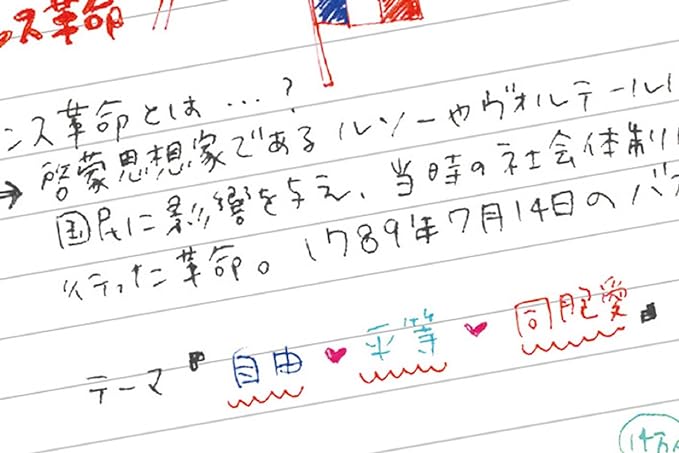 ンス革命 //
ンス革命とは…?
→ 啓蒙思想家であるルソーやヴォルテール
国民に影響を与え、当時の社会体制
行った革命。1789年7月14日のバ
テーマ 『自由♥平等♥同胞愛』
14万